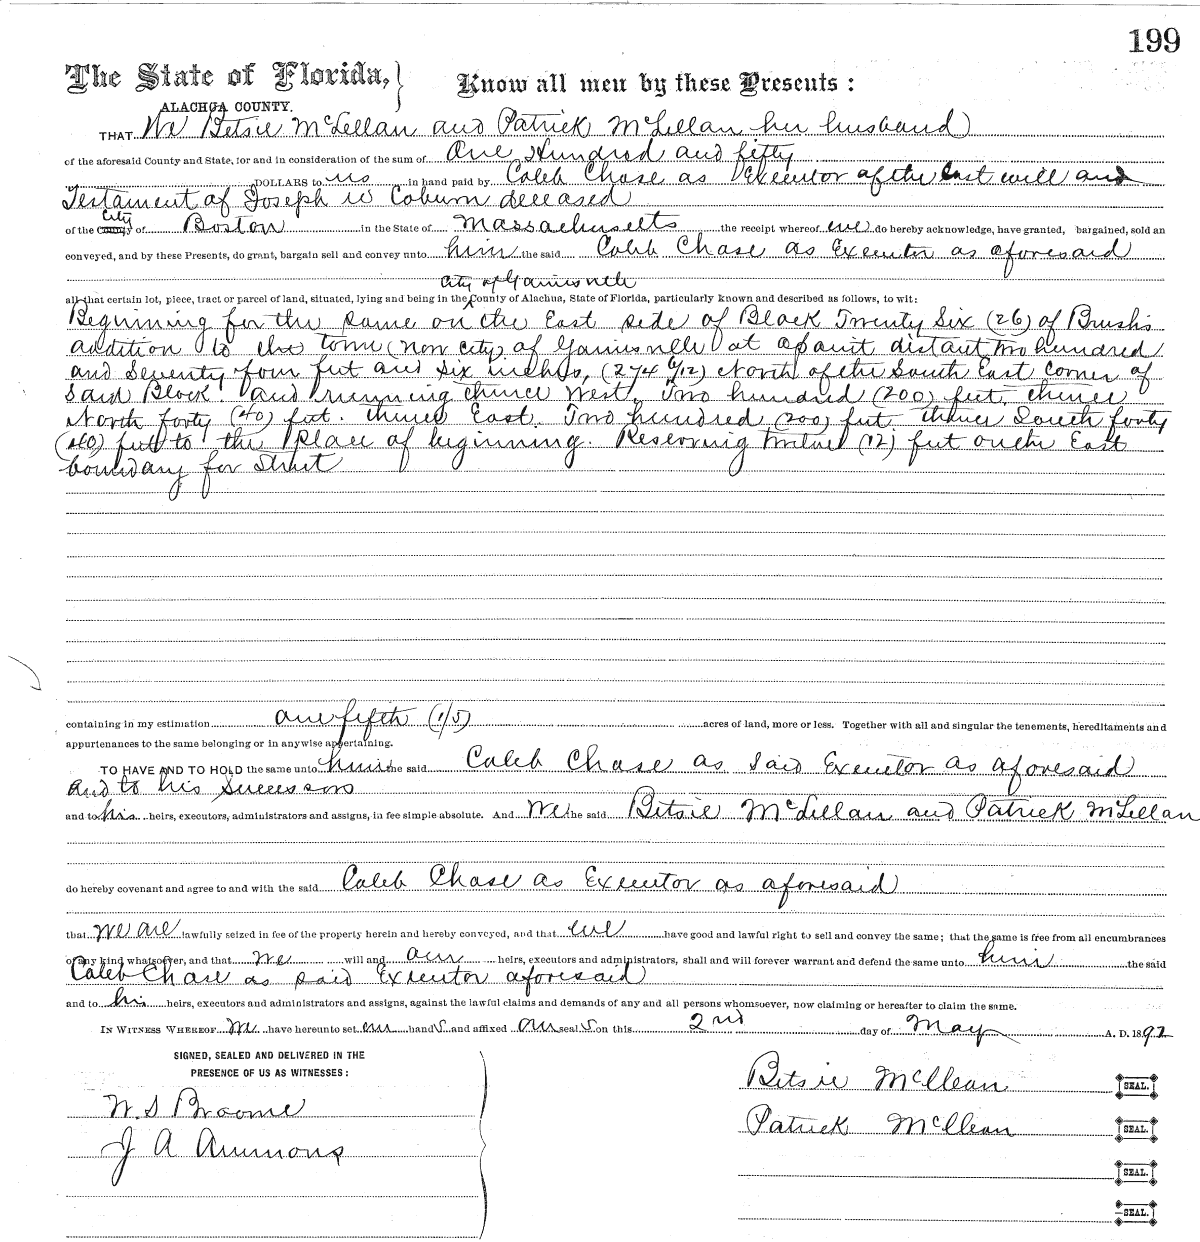 199
The State of Florida,} Know all men by these Presents:
ALACHUA COUNTY.
THAT We Betsie McLellan and Patrick McLellan her husband
of the aforesaid County and State, for and in consideration of the sum of One Hundred and fifty
DOLLARS to us in hand paid by Caleb Chase as Executor of the last will and
Testament of Joseph W Coburn deceased
of the County City of Boston in the State of Massachusetts the receipt whereof we do hereby acknowledge, have granted, bargained, sold an
conveyed, and by these Presents, do grant, bargain sell and convey unto him the said Caleb Chase as Executor as aforesaid
City of Gainesville
all that certain lot, piece, tract or parcel of land, situated, lying and being in the County of Alachua, State of Florida, particularly known and described as follows, to wit:
Beginning for the same on the East side of Block Twenty Six (26) of Brush's
addition to the town (now city) of Gainesville at a point distant two hundred
and Seventy four feet and six inches, (274 6/12) North of the South East corner of
said Block. and running thence West, Two hundred (200) feet, thence
North forty (40) feet. thence East. Two hundred (200) feet. thence South forty
(40) feet to the Place of beginning. Reserving Twelve (12) feet on the East
boundary for Street
containing in my estimation one fifth (1/5) acres of land, more or less. Together with all and singular the tenements, hereditaments and
appurtenances to the same belonging or in anywise appertaining.
TO HAVE AND TO HOLD the same unto him the said Caleb Chase as said Executor as aforesaid
and to his Successors
and to his heirs, executors, administrators and assigns, in fee simple absolute. And We he said Betsie McLellan and Patrick McLellan
do hereby covenant and agree to and with the said Caleb Chase as Executor as aforesaid
that we are lawfully seized in fee of the property herein and hereby conveyed, and that we have good and lawful right to sell and convey the same; that the same is free from all encumbrances
of any kind whatsoever, and that we will and our heirs, executors and administrators, shall and will forever warrant and defend the same unto him the said
Caleb Chase as said Executor aforesaid
and to his heirs, executors and administrators and assigns, against the lawful claims and demands of any and all persons whomsoever, now claiming or hereafter to claim the same.
IN WITNESS WHEREOF We have hereunto set our hands and affixed our seals on this 2nd day of May A. D. 1892
SIGNED, SEALED AND DELIVERED IN THE
PRESENCE OF US AS WITNESSES:
W. S Broome
J A Ammons
Betsie McClean SEAL.
Patrick McClean SEAL.
SEAL.
SEAL.